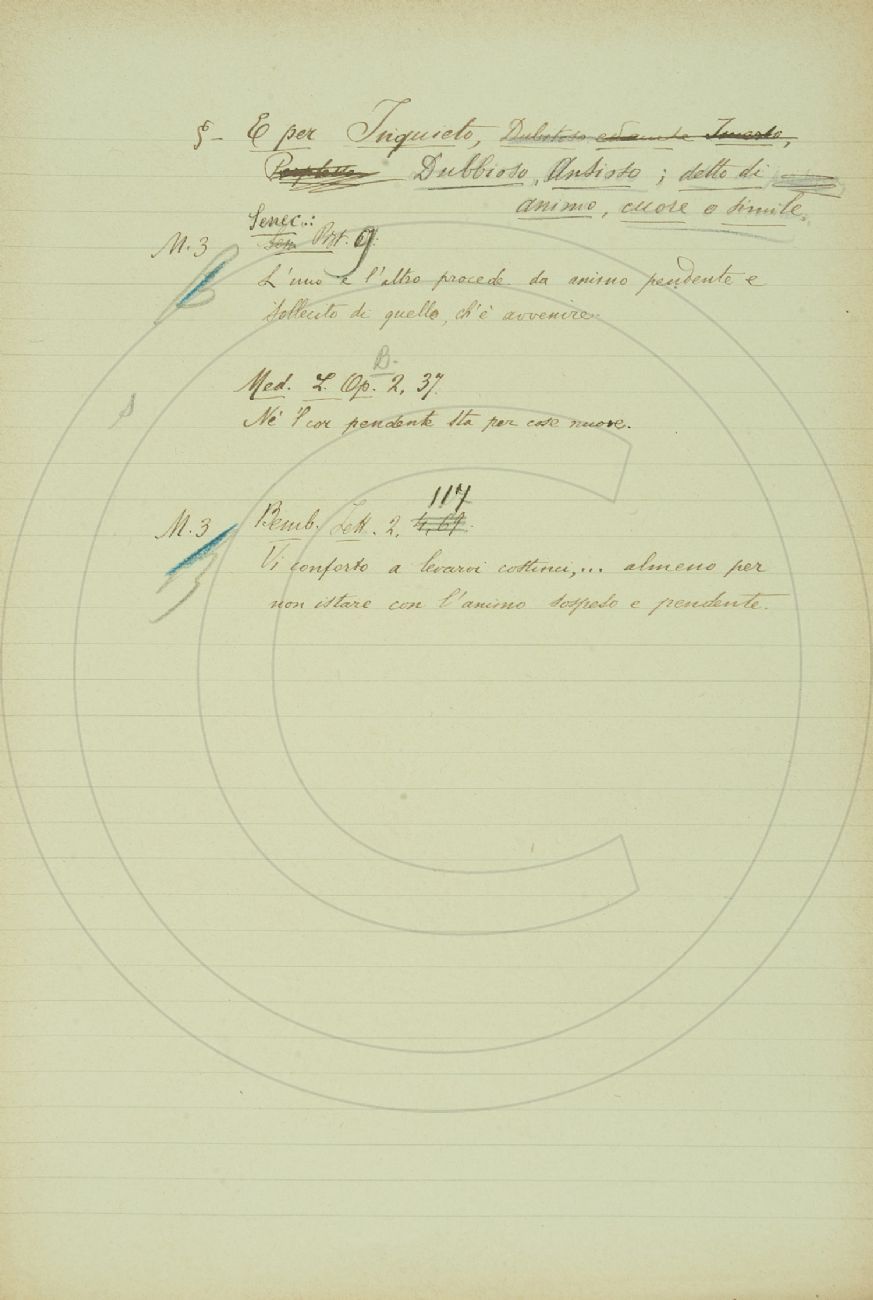 § - E per Inquieto, Dubitoso Incerto,
Perplesso Dubbioso, Ansioso; detto di
animo, cuore o simile.
Senec.:
M. 3 Sen. Pist. 9.
L'uno e l'altro procede da animo pendente e
sollecito di quello, ch'è avvenire.
B.
Med. L. Op. 2, 37.
Nè 'l cor pendente sta per cose nuove.
117
M. 3 Bemb. Lett. 2, 4, 69.
Vi conforto a levarvi costinci,... almeno per
non istare con l'animo sospeso e pendente.